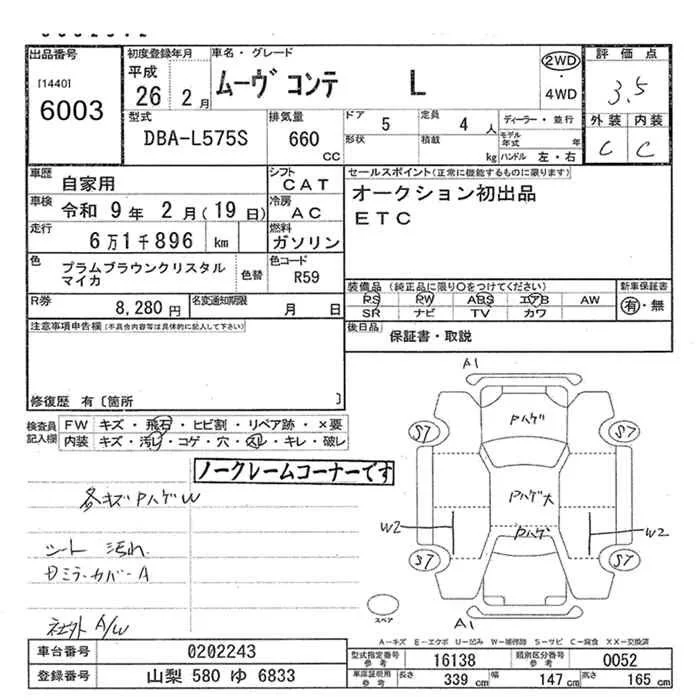 出品番号 初度登録年月 車名・グレード 2WD 評価点
[1440] 平成 ムーヴ コンテ L 4WD 3.5
6003 26 2月
型式 排気量 ドア 5 定員 4人 ディーラー・並行 外装 内装
DBA-L575S 660cc 形状 積載 kg モデル年式 年 C C
ハンドル 左・右
車歴 自家用 シフト CAT セールスポイント(正常に機能するものに限ります)
車検 令和 9年 2月(19日) 冷房 AC オークション初出品
走行 6万1千896 km 燃料 ガソリン ETC
色 プラムブラウンクリスタル 色替 色コード R59
マイカ
装備品(純正品に限り○をつけてください) 新車保証書
R券 8,280円 名変通知期限 月 日 PS PW ABS エアB AW 有・無
SR ナビ TV カワ
注意事項申告欄(不具合内容等は具体的に記入して下さい) 後日品 保証書・取説
修復歴 有〔箇所 〕
検査員記入欄 FW キズ・飛石・ヒビ割・リペア跡・×要
内装 キズ・汚レ・コゲ・穴・スレ・キレ・破レ
ノークレームコーナーです
各キズPハゲW
シート 汚れ
社外 A/W
A1
Pハゲ
S7 S7
Pハゲ大
W2 Pハゲ W2
S7 S7
スペア A1
A-キズ E-エクボ U-凹み W-補修跡 S-サビ C-腐食 XX-交換済
車台番号 0202243 型式指定番号 参考 16138 類別区分番号 参考 0052
登録番号 山梨 580 ゆ 6833 車庫証明用 参考 長さ 339 cm 幅 147 cm 高さ 165 cm